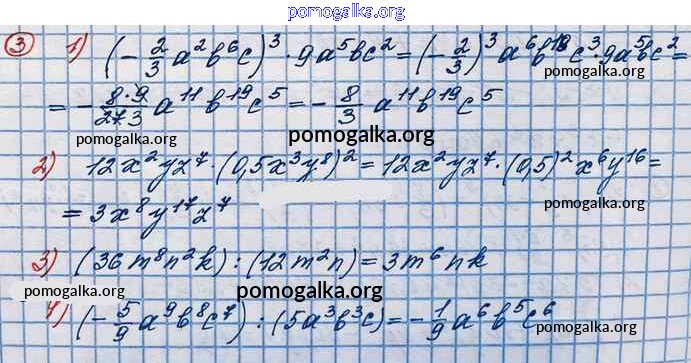 pomogalka.org
3 1) (-2/3 a²b⁶c)³ · 9a⁵bc² = (-2/3)³ a⁶b¹⁸c³ · 9a⁵bc² =
= - 8·9/27 3 a¹¹b¹⁹c⁵ = - 8/3 a¹¹b¹⁹c⁵
pomogalka.org
pomogalka.org
pomogalka.org
2) 12x²yz⁷ · (0,5x³y⁸)² = 12x²yz⁷ · (0,5)² x⁶y¹⁶ =
= 3x⁸y¹⁷z⁷
pomogalka.org
3) (36m⁸n²k) : (12m²n) = 3m⁶nk
pomogalka.org
pomogalka.org
4) (-5/9 a⁹b⁸c⁷) : (5a³b³c) = -1/9 a⁶b⁵c⁶
pomogalka.org
pomogalka.org